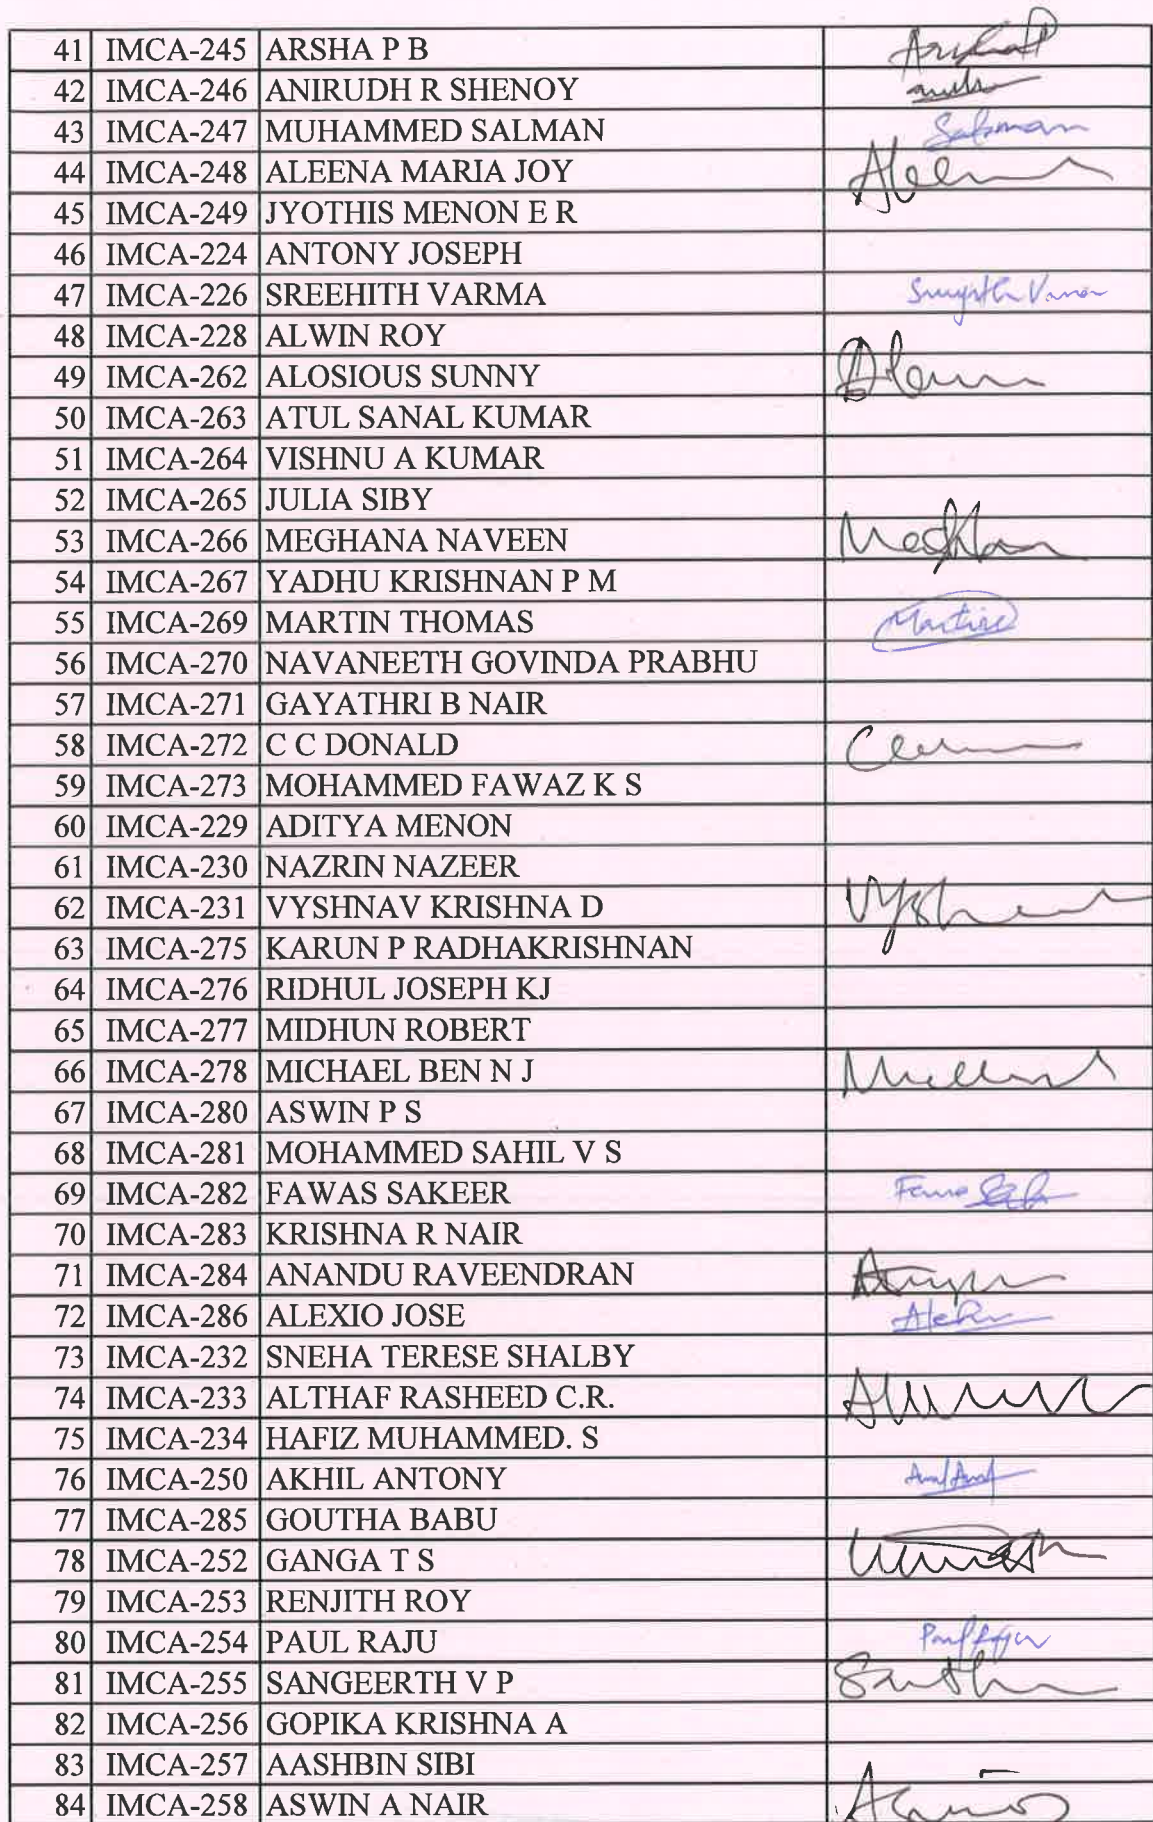 41 IMCA-245 ARSHA P B
42 IMCA-246 ANIRUDH R SHENOY
43 IMCA-247 MUHAMMED SALMAN Salman
44 IMCA-248 ALEENA MARIA JOY
45 IMCA-249 JYOTHIS MENON E R
46 IMCA-224 ANTONY JOSEPH
47 IMCA-226 SREEHITH VARMA
48 IMCA-228 ALWIN ROY
49 IMCA-262 ALOSIOUS SUNNY
50 IMCA-263 ATUL SANAL KUMAR
51 IMCA-264 VISHNU A KUMAR
52 IMCA-265 JULIA SIBY
53 IMCA-266 MEGHANA NAVEEN
54 IMCA-267 YADHU KRISHNAN P M
55 IMCA-269 MARTIN THOMAS
56 IMCA-270 NAVANEETH GOVINDA PRABHU
57 IMCA-271 GAYATHRI B NAIR
58 IMCA-272 C C DONALD
59 IMCA-273 MOHAMMED FAWAZ K S
60 IMCA-229 ADITYA MENON
61 IMCA-230 NAZRIN NAZEER
62 IMCA-231 VYSHNAV KRISHNA D
63 IMCA-275 KARUN P RADHAKRISHNAN
64 IMCA-276 RIDHUL JOSEPH KJ
65 IMCA-277 MIDHUN ROBERT
66 IMCA-278 MICHAEL BEN N J
67 IMCA-280 ASWIN P S
68 IMCA-281 MOHAMMED SAHIL V S
69 IMCA-282 FAWAS SAKEER
70 IMCA-283 KRISHNA R NAIR
71 IMCA-284 ANANDU RAVEENDRAN
72 IMCA-286 ALEXIO JOSE
73 IMCA-232 SNEHA TERESE SHALBY
74 IMCA-233 ALTHAF RASHEED C.R.
75 IMCA-234 HAFIZ MUHAMMED. S
76 IMCA-250 AKHIL ANTONY
77 IMCA-285 GOUTHA BABU
78 IMCA-252 GANGA T S
79 IMCA-253 RENJITH ROY
80 IMCA-254 PAUL RAJU
81 IMCA-255 SANGEERTH V P
82 IMCA-256 GOPIKA KRISHNA A
83 IMCA-257 AASHBIN SIBI
84 IMCA-258 ASWIN A NAIR